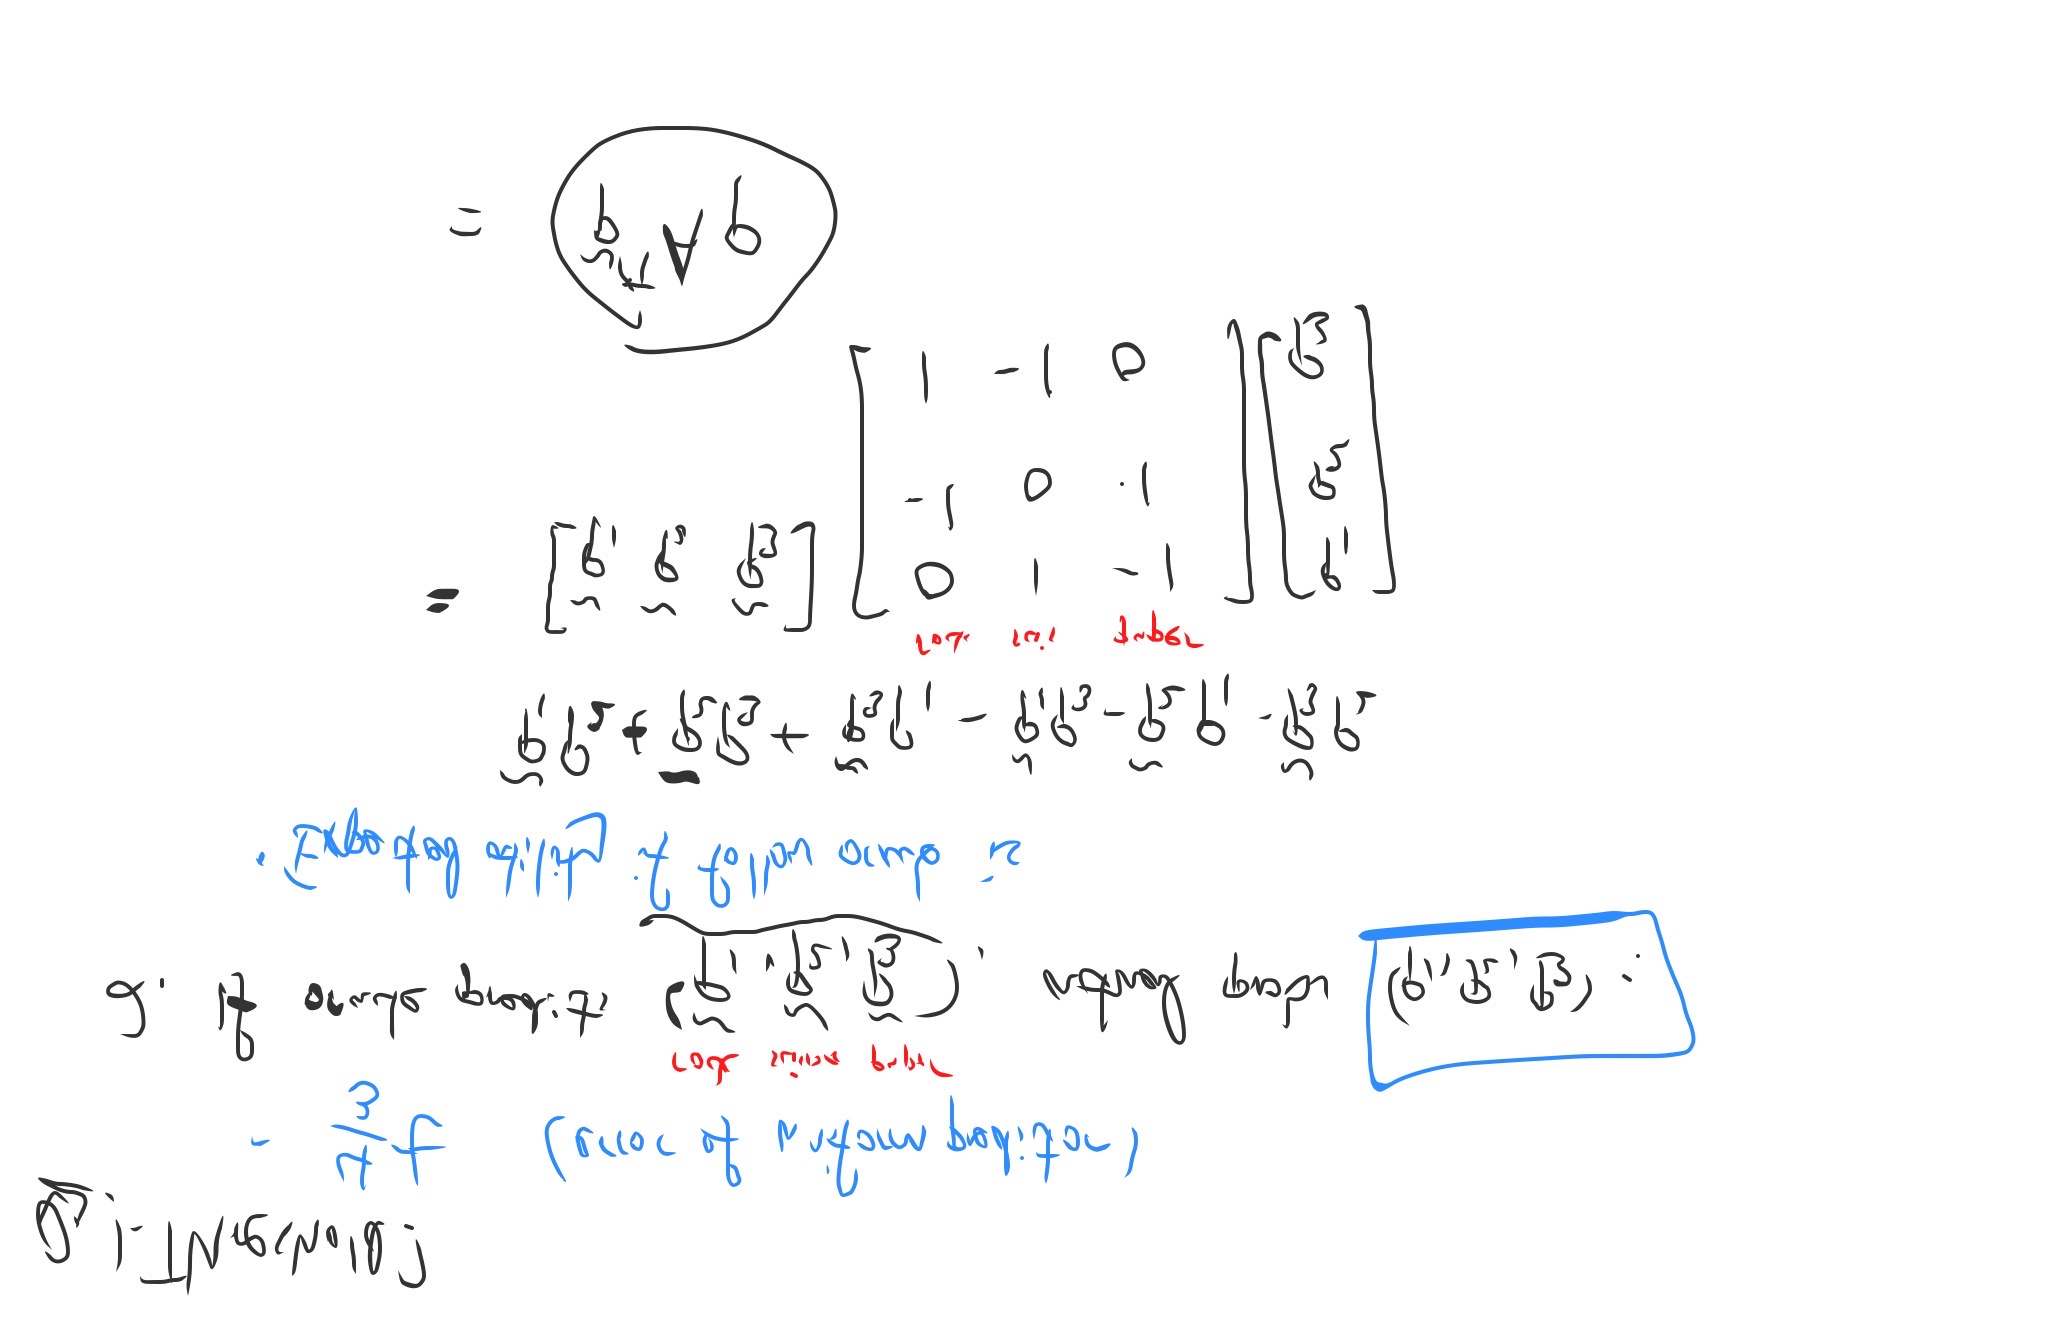 Qs: 1. Threshold?
- 4/3 t (error of uniform preditor)
rock scissor paper
2. If oracle predicts (p̃₁, p̃₂, p̃₃), actual probs (p₁, p₂, p₃):
· Expected utility if follow oracle is
p̃₁p₂ + p̃₂p₃ + p̃₃p₁ - p̃₁p₃ - p̃₂p₁ - p̃₃p₂
rock scis paper
= [p̃₁ p̃₂ p̃₃] [0 1 -1; -1 0 1; 1 -1 0] [p₁; p₂; p₃]
= p̃ᵀAp